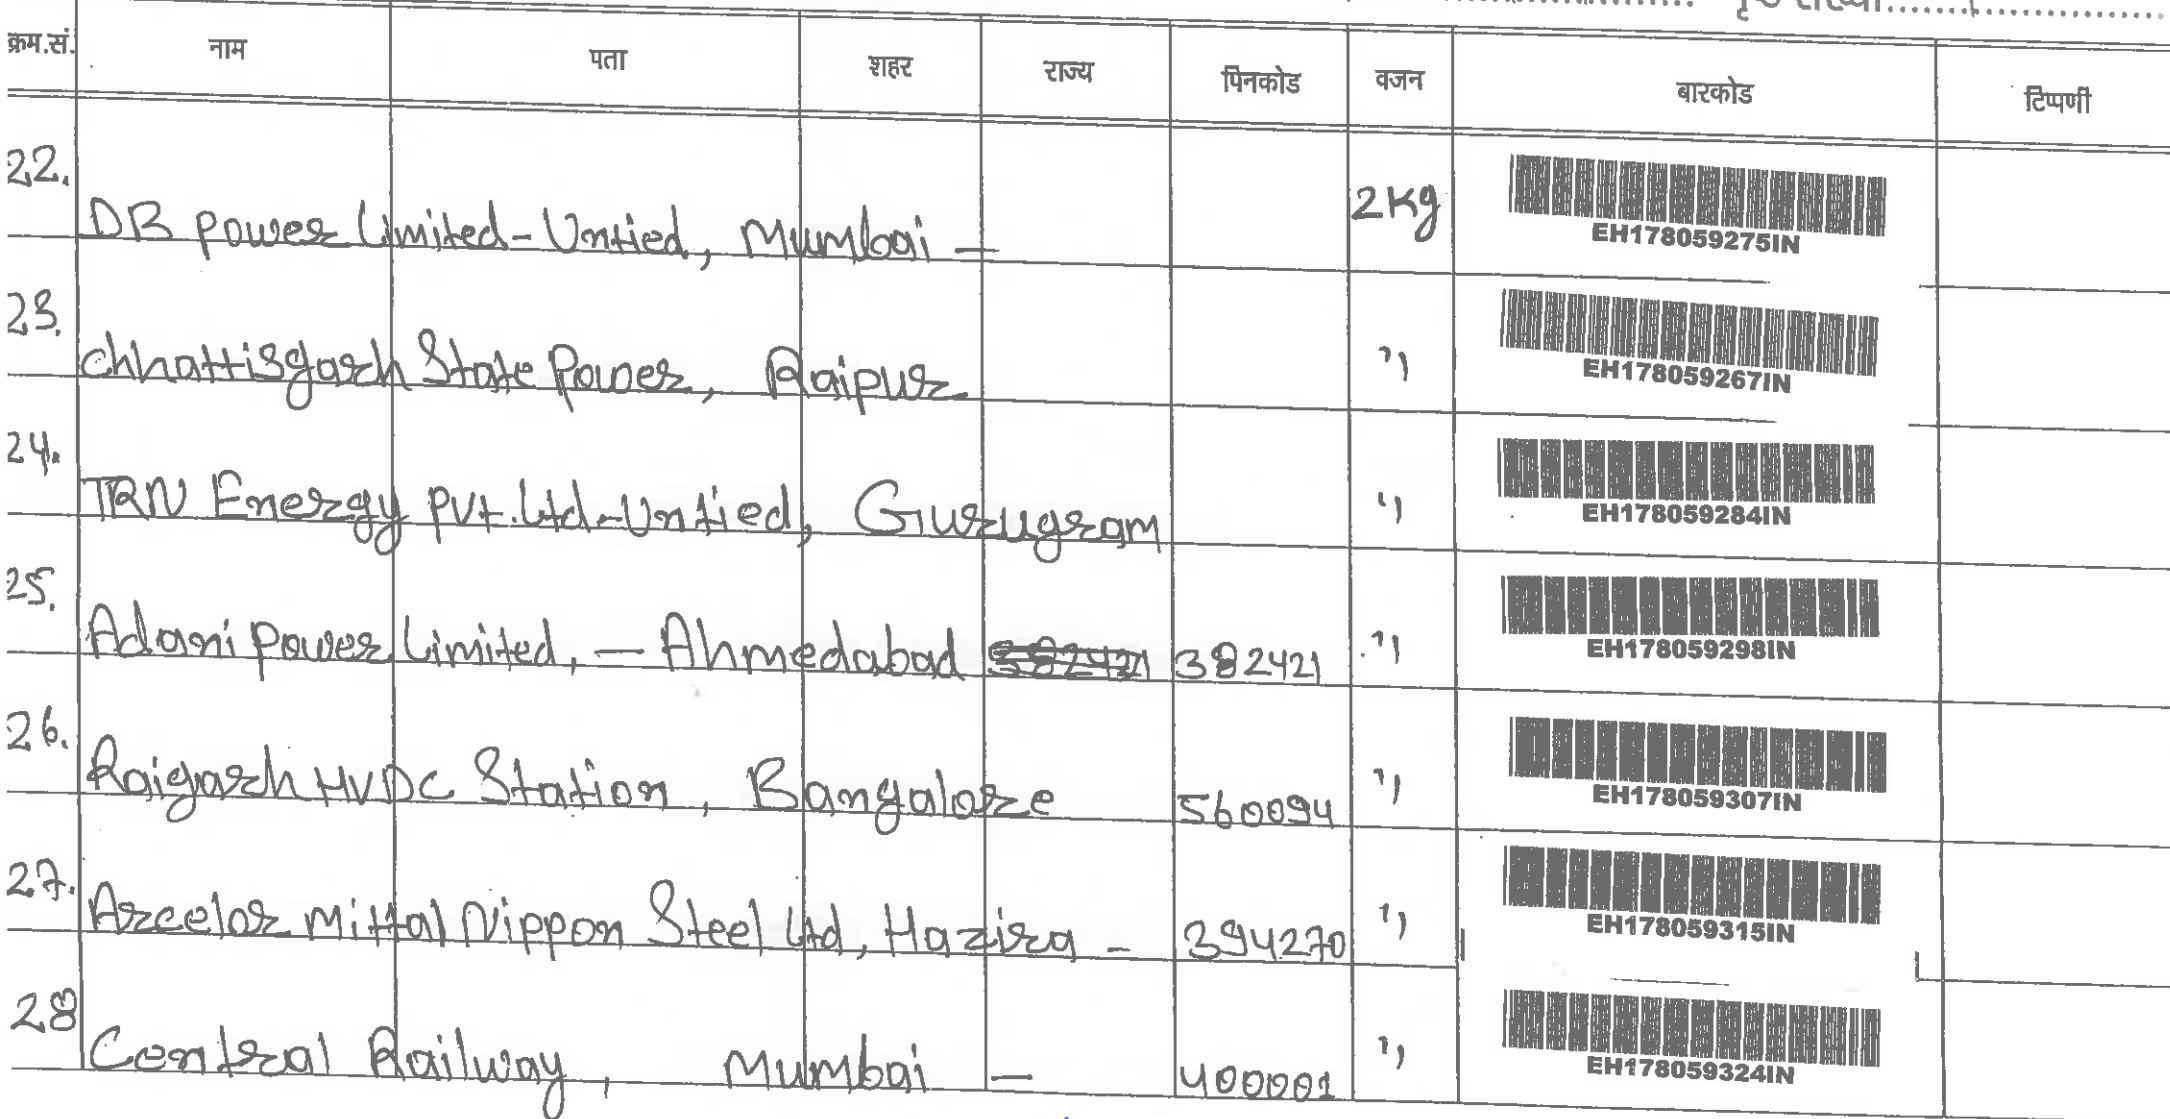 पृष्ठ संख्या
क्रम.सं. नाम पता शहर राज्य पिनकोड वजन बारकोड टिप्पणी
22. DB Power Limited-Untied, Mumbai - 2Kg EH178059275IN
23. Chhattisgarh State Power, Raipur " EH178059267IN
24. TRN Energy Pvt. Ltd-Untied, Gurugram " EH178059284IN
25. Adani Power Limited, - Ahmedabad 382421 382421 " EH178059298IN
26. Raigarh HVDC Station, Bangalore 560094 " EH178059307IN
27. Arcelor Mittal Nippon Steel Ltd, Hazira - 394270 " EH178059315IN
28 Central Railway, Mumbai - 400001 " EH178059324IN